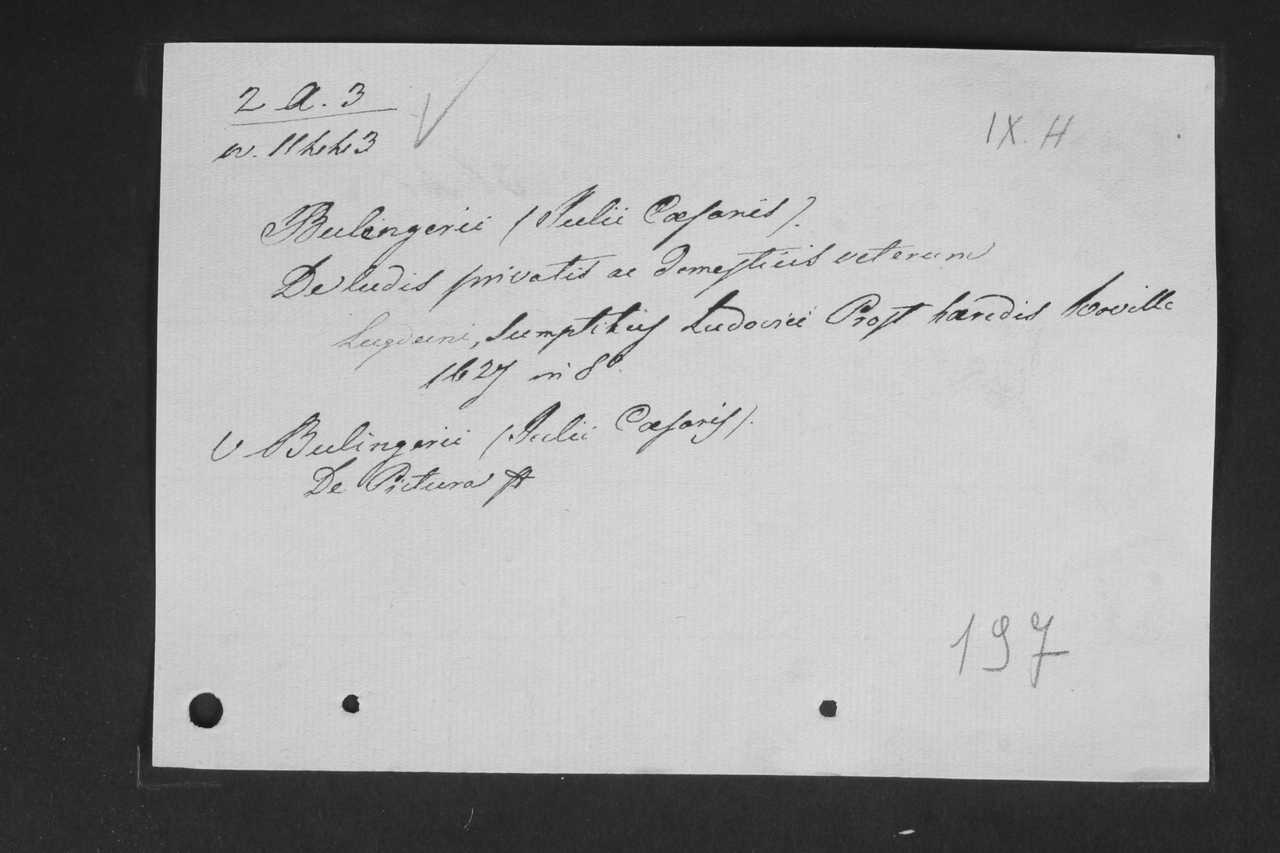 2 a. 3
IX. H
v. 11 hh 3
Bulengerii (Julii Cæsaris).
De ludis privatis ac domesticis veterum
Lugduni, Sumptibus Ludovici Prost hæredis Roville
1627 in 8º.
V Bulingerii (Julii Cæsaris).
De Pictura
197